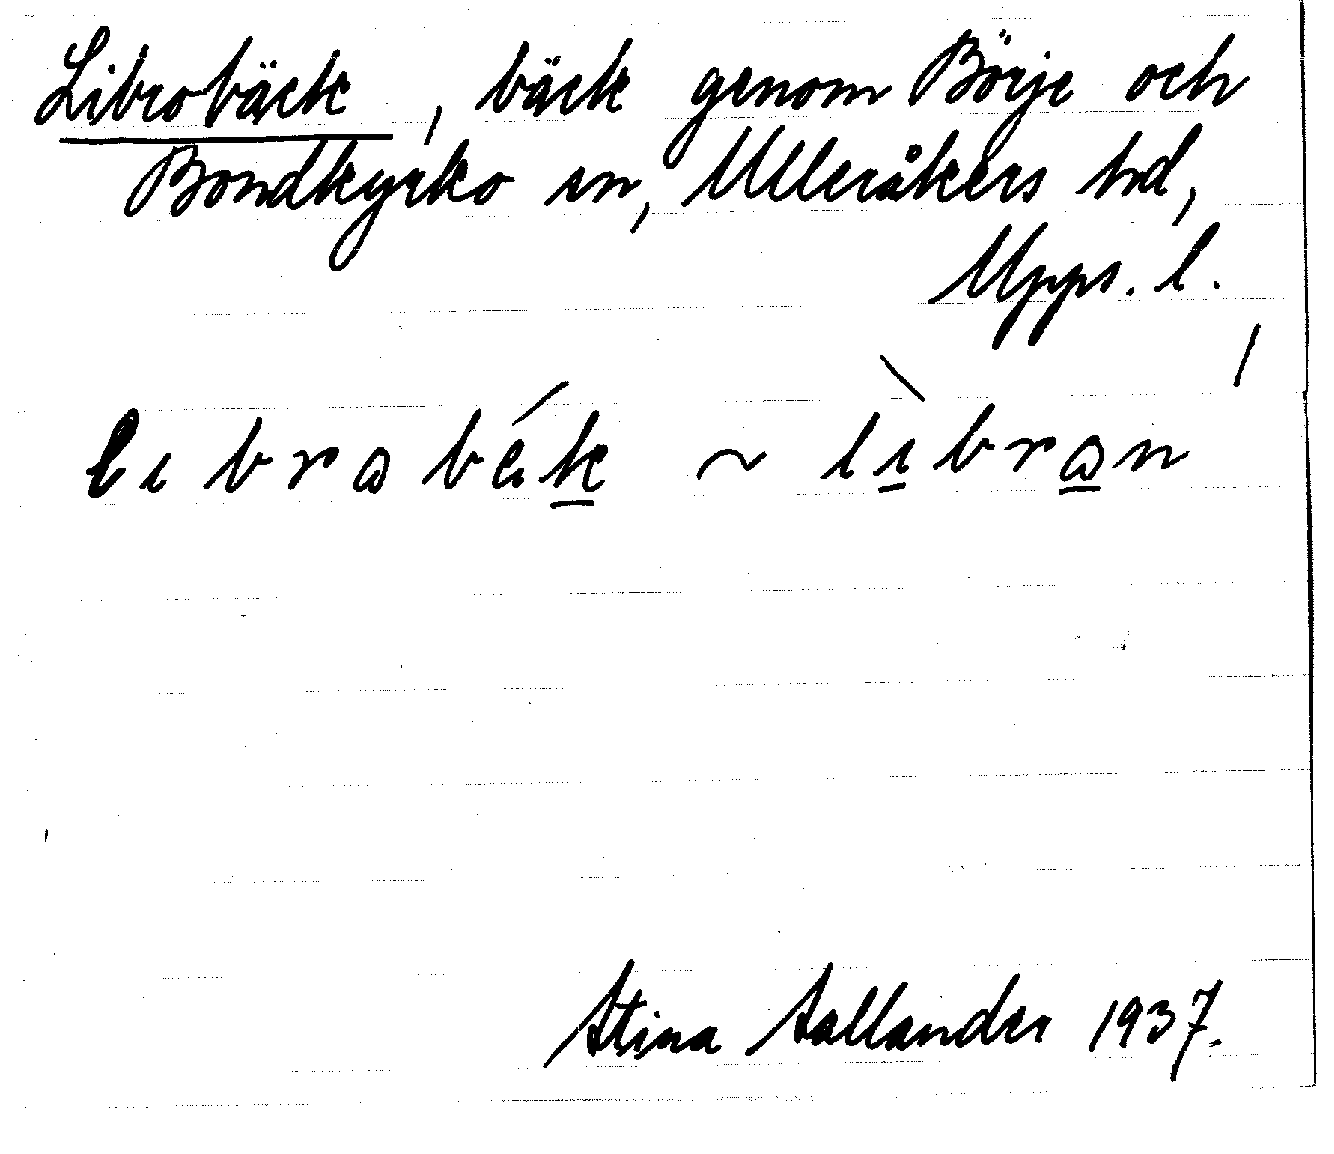 Librobäck, bäck genom Börje och
Bondkyrko sn, Ulleråkers hd,
Upps. l.
librobäk ~ libron
Stina Sallander 1937.